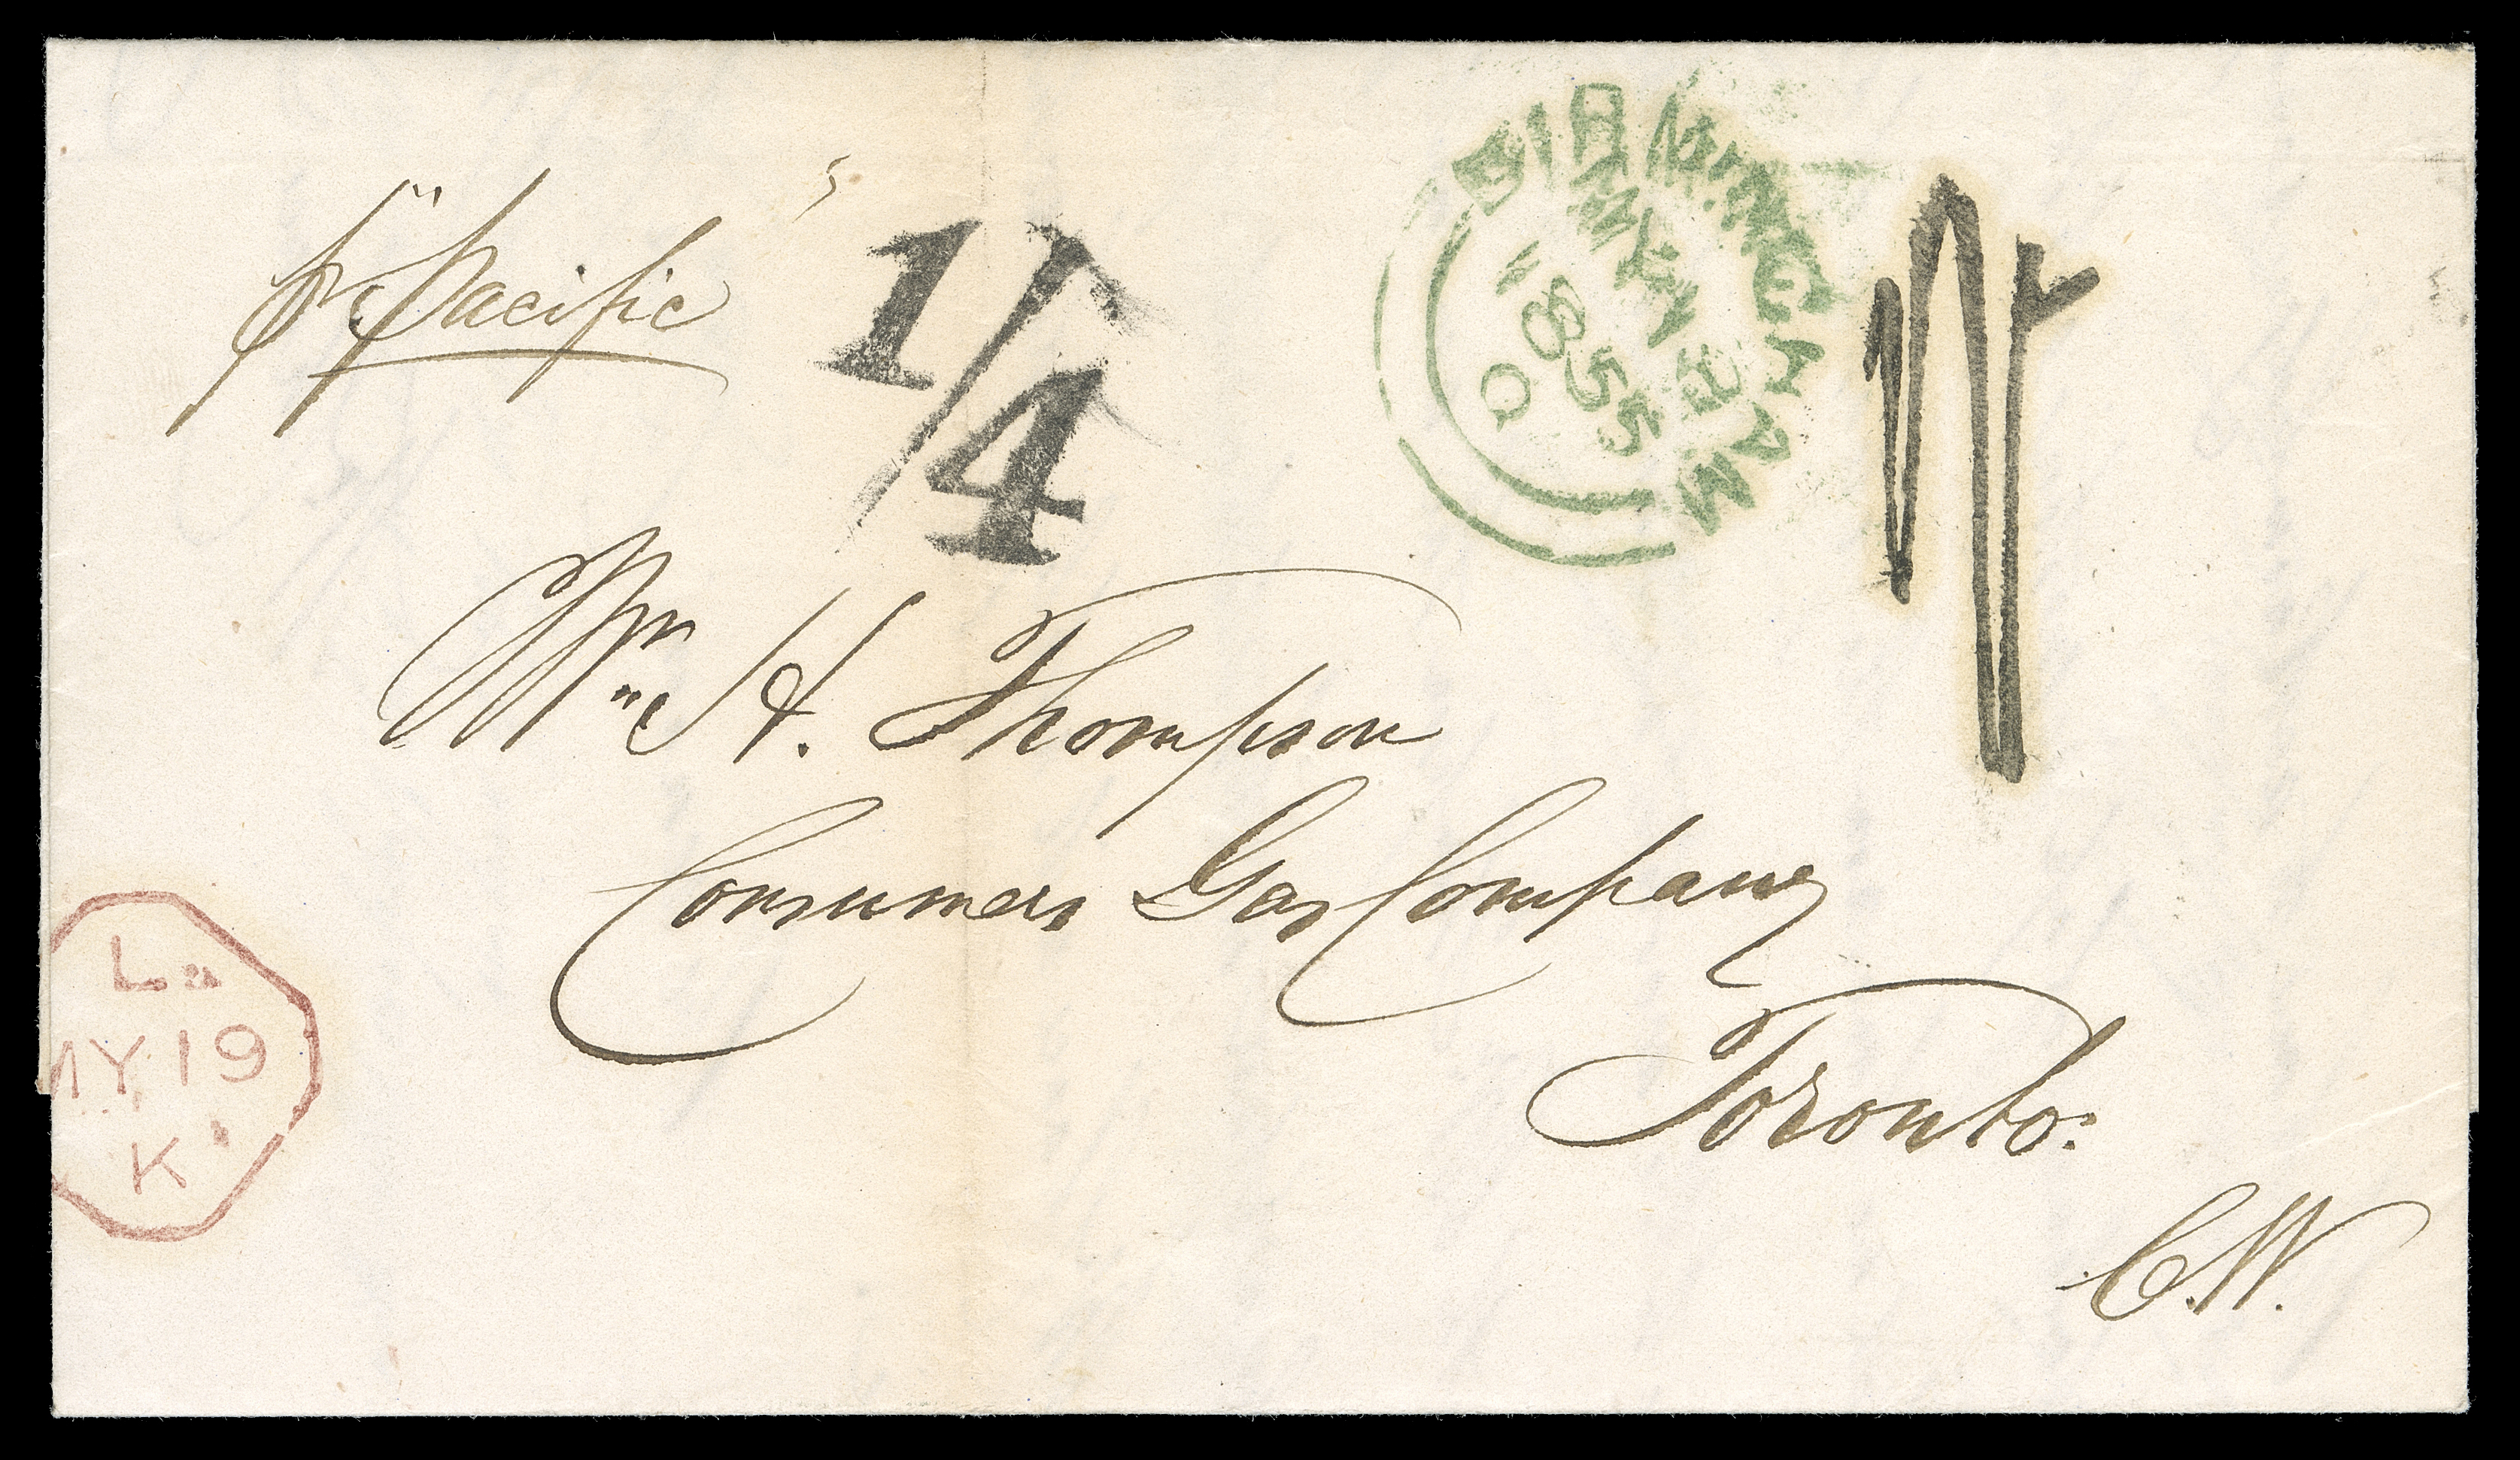 pr "Pacific"
1/4
BIRMINGHAM
MY 18
1855
Q
Wm H. Thompson
Consumers Gas Company
Toronto.
C.W.
L
MY 19
K